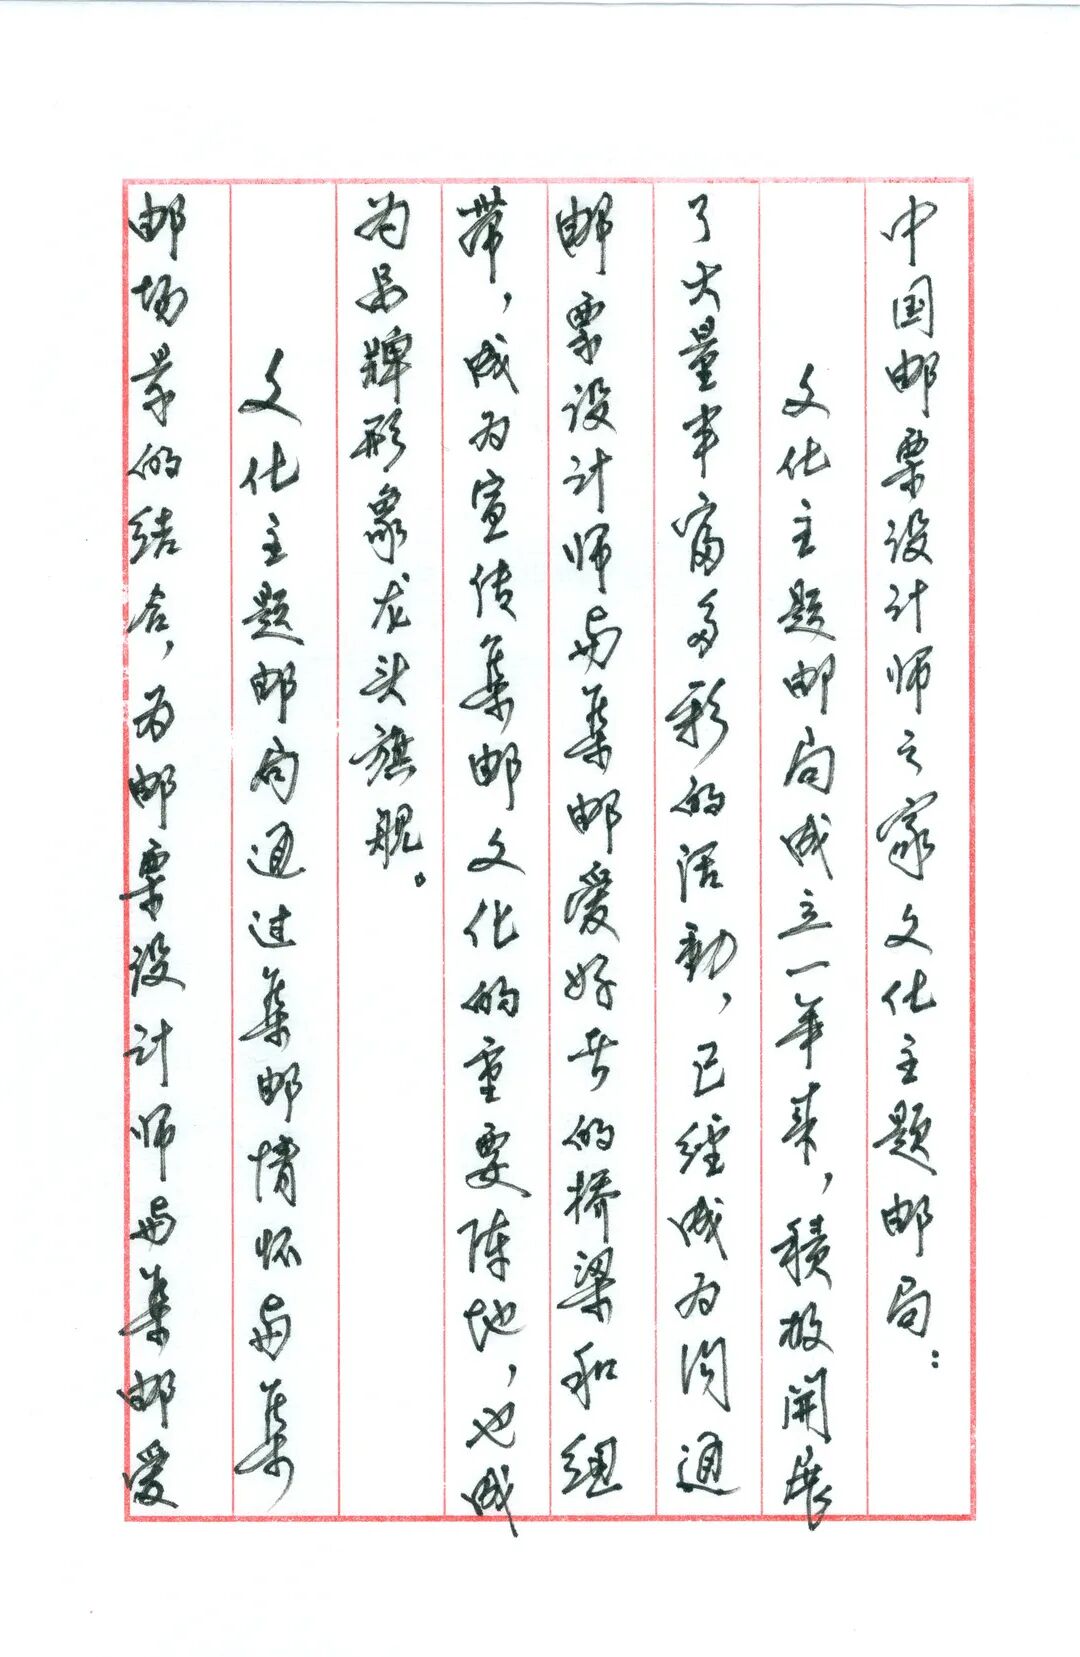 中国邮票设计师之家文化主题邮局：
文化主题邮局成立一年来，积极开展
了大量丰富多彩的活动，已经成为沟通
邮票设计师与集邮爱好者的桥梁和纽
带，成为宣传集邮文化的重要阵地，也成
为品牌形象龙头旗舰。
文化主题邮局通过集邮情怀与集
邮场景的结合，为邮票设计师与集邮爱